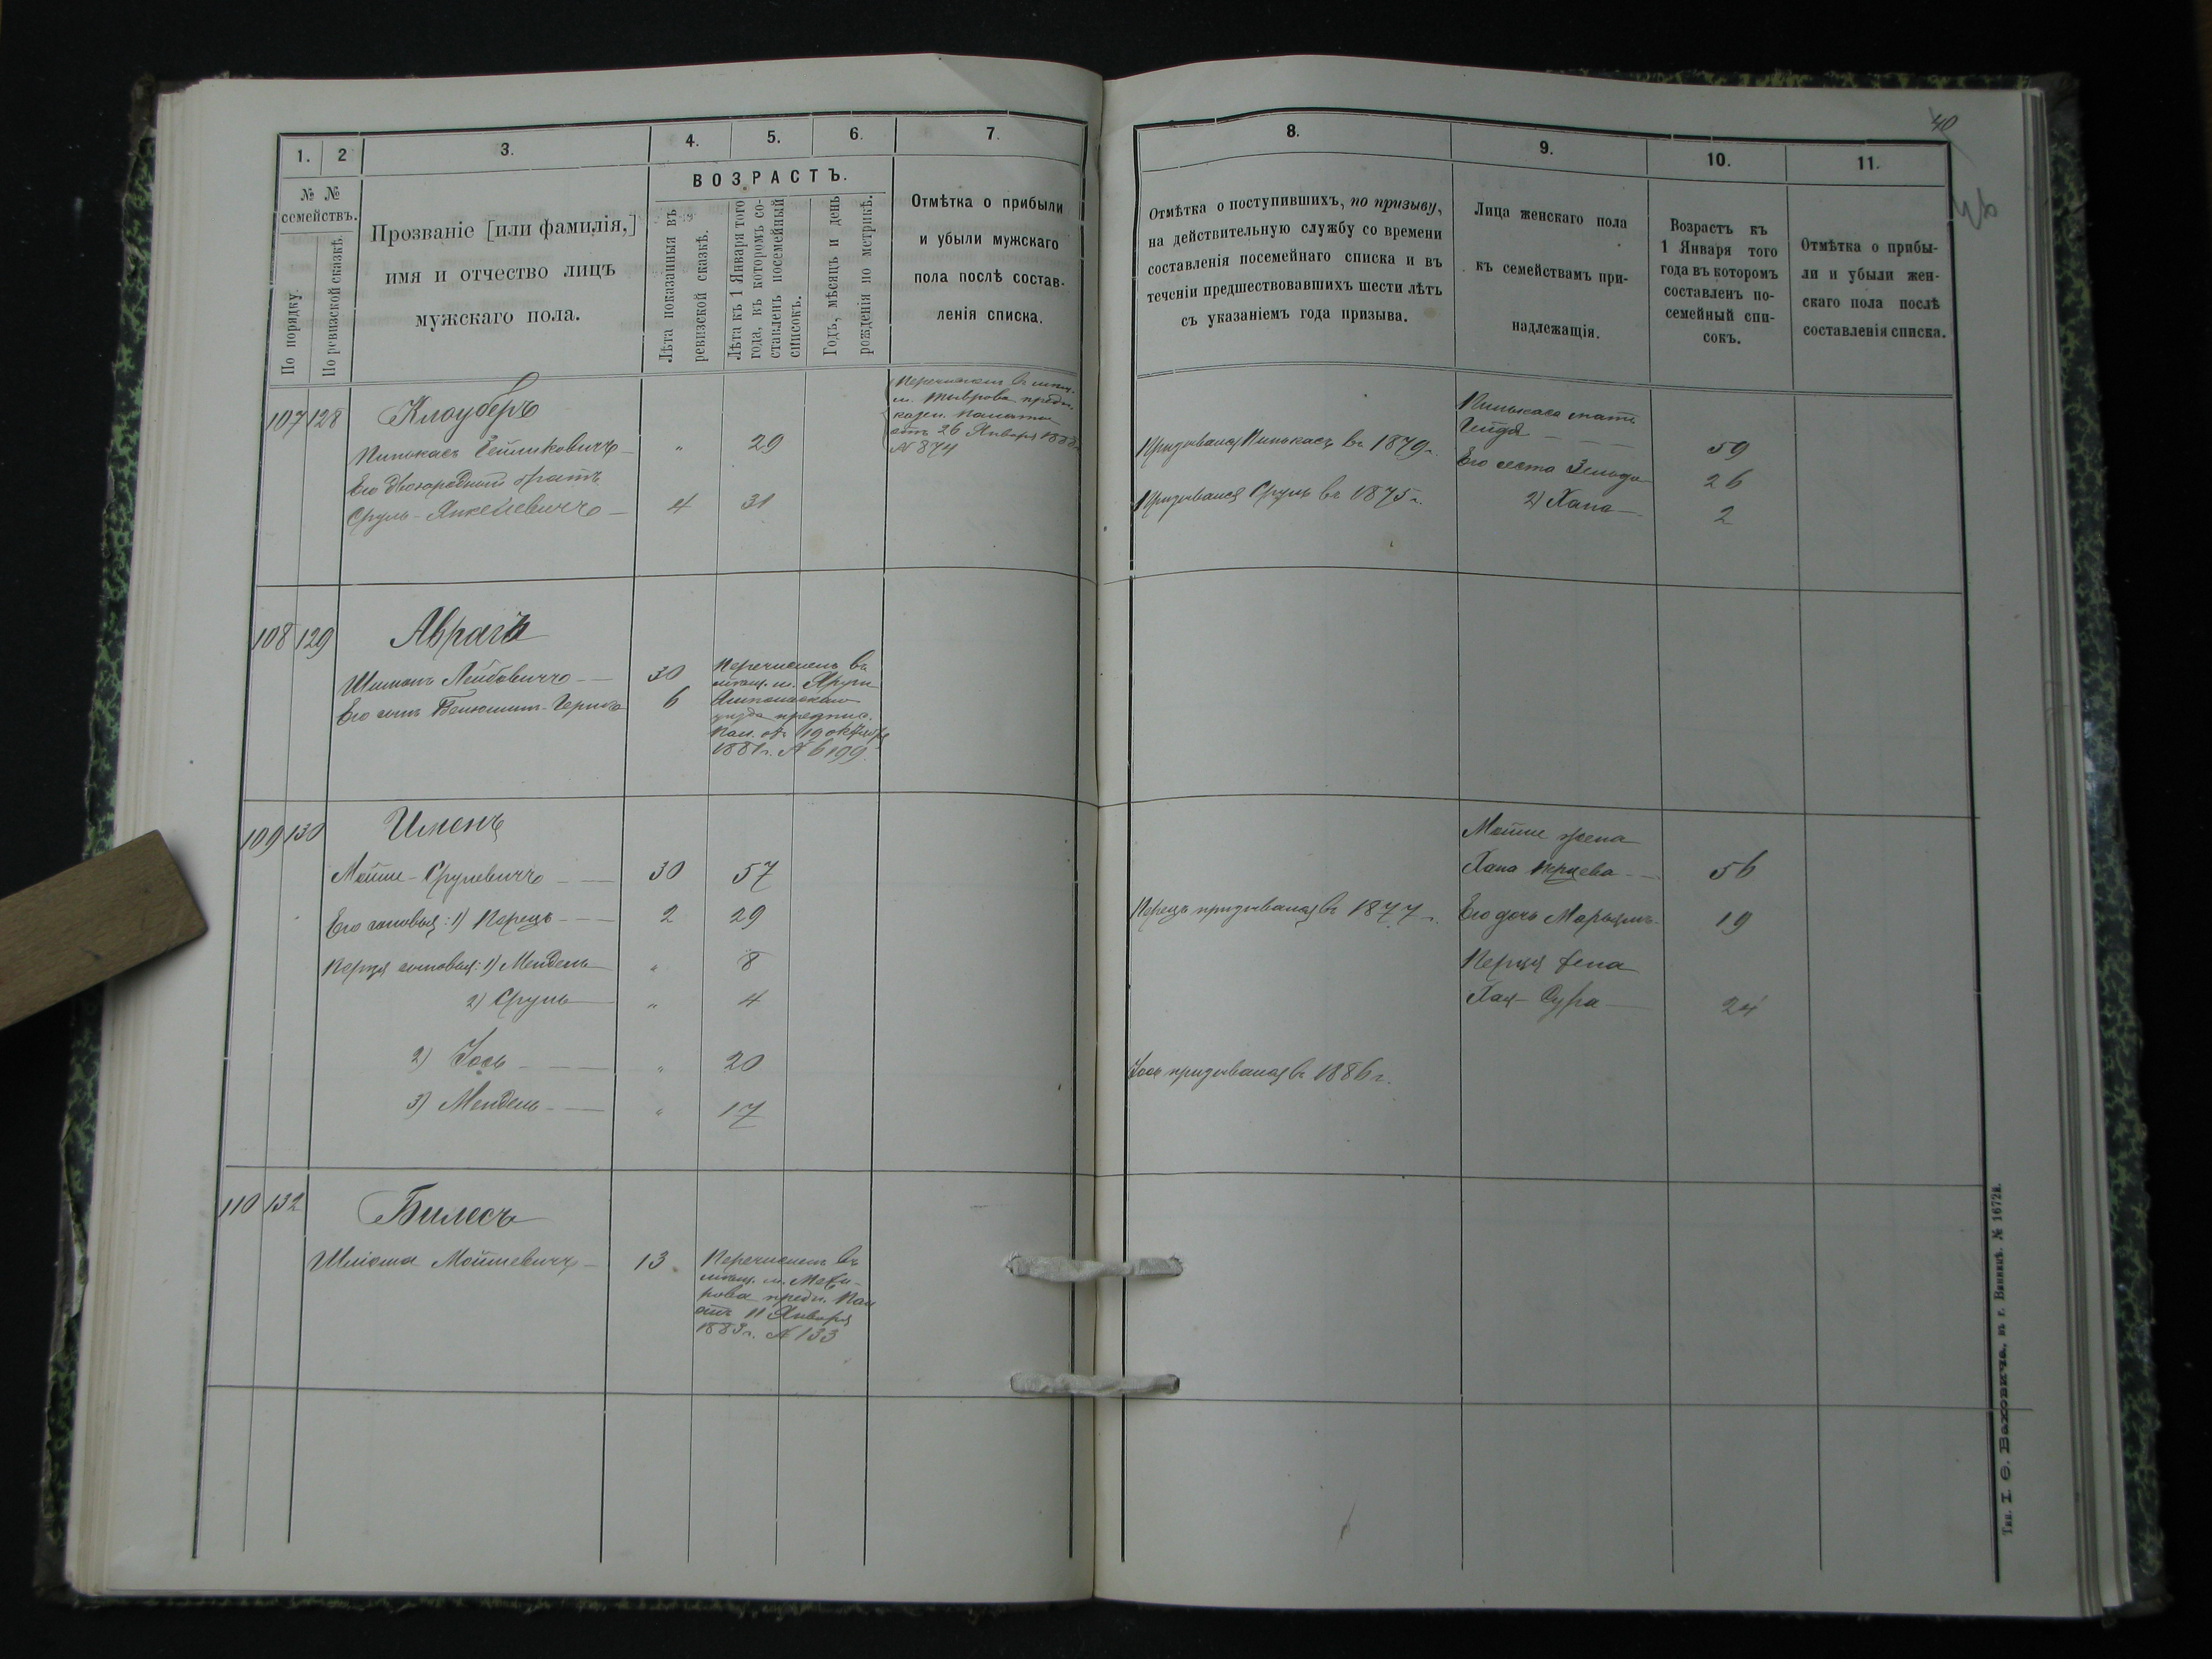 1. 2 3. 4. 5. 6. 7.
№ №
семействъ.
По порядку.
По ревизской сказкѣ.
Прозваніе [или фамилія,]
имя и отчество лицъ
мужскаго пола.
ВОЗРАСТЪ.
Лѣта показанныя въ
ревизской сказкѣ.
Лѣта къ 1 Января того
года, въ которомъ со-
ставленъ посемейный
списокъ.
Годъ, мѣсяцъ и день
рожденія по метрикѣ.
Отмѣтка о прибыли
и убыли мужскаго
пола послѣ состав-
ленія списка.
107 128 Клоуберъ
Перечисленъ въ мѣщ.
м. Тыврова предп.
казен. палаты
отъ 26 Января 1888 г.
№ 874
Пинькасъ — " 29
Его двоюродный братъ
Сруль-Янкелевичъ — 4 31
108 129 Аврахъ
Шимонъ Лейбовичъ — 30
Его сынъ 6
Перечисленъ въ
мѣщ. м.
Ямпольскаго
уѣзда предпис.
Пал. отъ 19 октября
1881 г. № 6199
109 130 Именъ
Мойше-Срулевичъ — 30 57
Его сыновья: 1) Перецъ — 2 29
Перця сыновья: 1) Мендель — " 8
2) Сруль — " 4
2) Іось — " 20
3) Мендель — " 17
110 132 Билесъ
Шліома Мойшевичъ — 13
Перечисленъ въ
мѣщ. м.
предп. Пал
отъ 11 Января
1883 г. № 133
40
8. 9. 10. 11.
Отмѣтка о поступившихъ, по призыву,
на дѣйствительную службу со времени
составленія посемейнаго списка и въ
теченіи предшествовавшихъ шести лѣтъ
съ указаніемъ года призыва.
Лица женскаго пола
къ семействамъ при-
надлежащія.
Возрастъ къ
1 Января того
года въ которомъ
составленъ по-
семейный спи-
сокъ.
Отмѣтка о прибы-
ли и убыли жен-
скаго пола послѣ
составленія списка.
Пинькаса мать
Призывался Пинькасъ въ 1879 г. 59
Его сестра Зельда 26
Призывался Сруль въ 1875 г. 2) Хана — 2
Мойше жена
Хана — 56
Перецъ призывался въ 1877 г. Его дочь Марьямъ 19
Перця жена
Хая-Сура — 24
Іось призывался въ 1886 г.
Тип. І. Ѳ. Ваховича, въ г. Винницѣ. № 1672а.